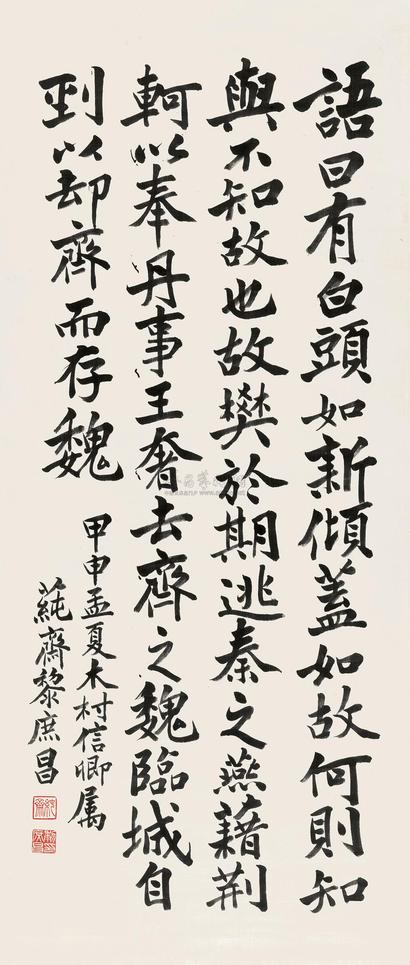 語曰有白頭如新傾蓋如故何則知
與不知故也故樊於期逃秦之燕藉荆
軻以奉丹事王奢去齊之魏臨城自
剄以却齊而存魏
甲申孟夏木村信卿属
蒓齋黎庶昌